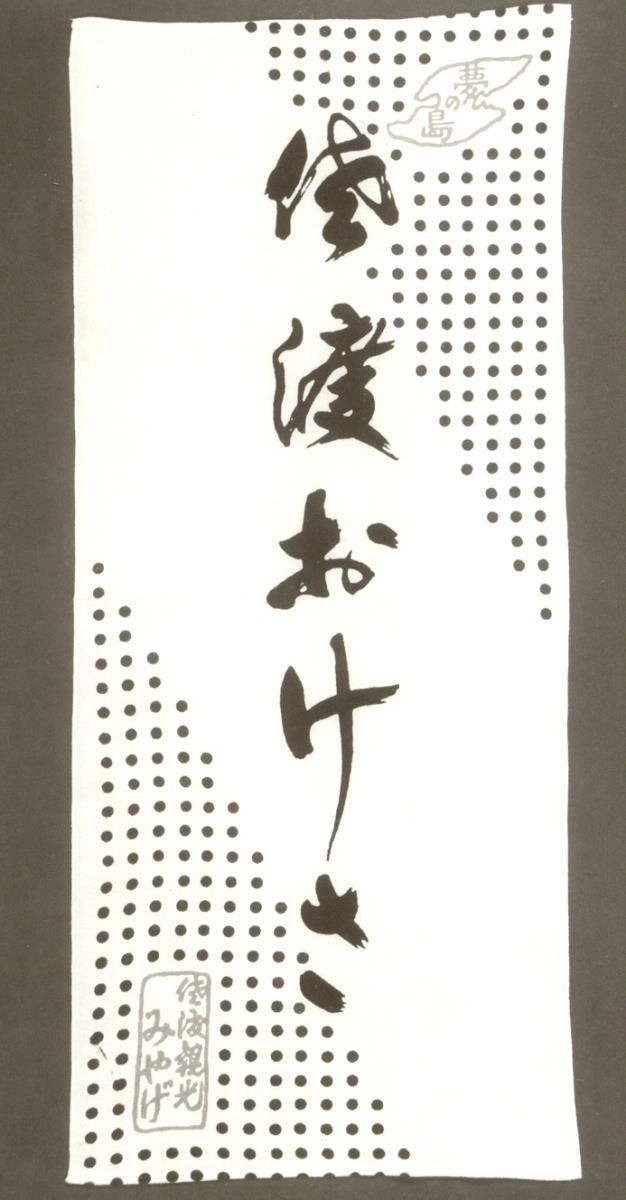 夢の島
佐渡おけさ
佐渡観光
みやげ